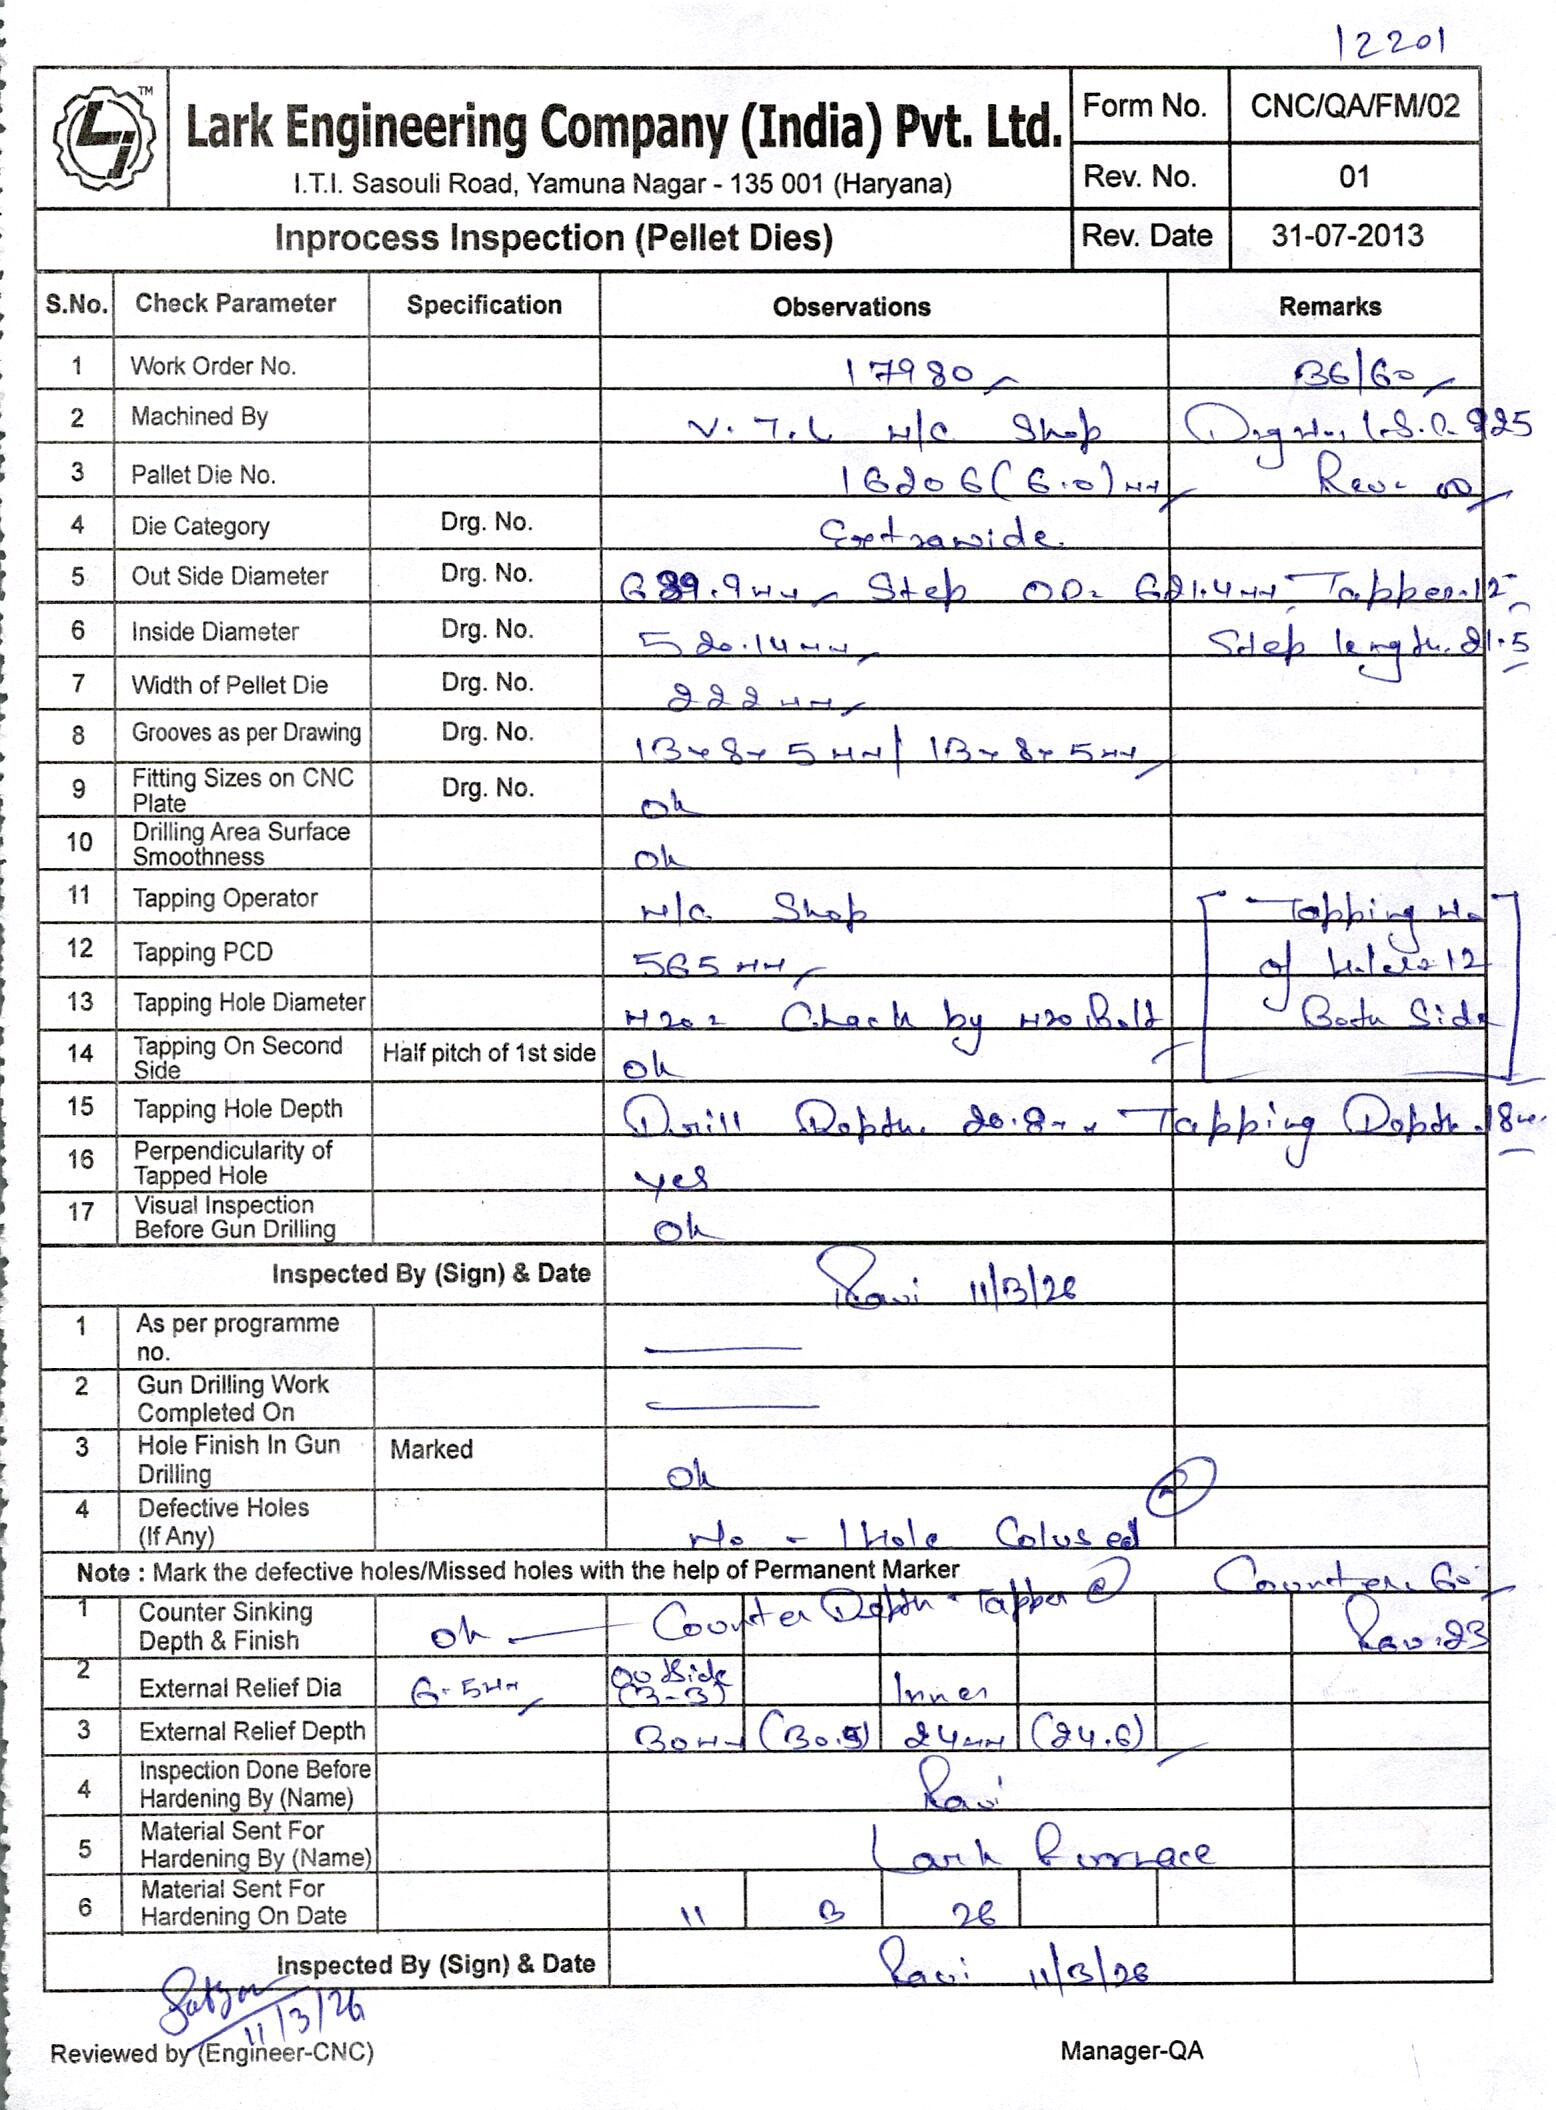 12201
TM
Lark Engineering Company (India) Pvt. Ltd.
I.T.I. Sasouli Road, Yamuna Nagar - 135 001 (Haryana)
Form No. CNC/QA/FM/02
Rev. No. 01
Inprocess Inspection (Pellet Dies) Rev. Date 31-07-2013
S.No. Check Parameter Specification Observations Remarks
1 Work Order No. 17980 36/60
2 Machined By V.T.L M/C Shop Drg No.
3 Pallet Die No. 16206 (6.0)mm Rev- 00
4 Die Category Drg. No. Extrawide
5 Out Side Diameter Drg. No. 689.9mm Step OD= 621.4mm Tapper.12
6 Inside Diameter Drg. No. 520.14mm Step length.21.5
7 Width of Pellet Die Drg. No. 222mm
8 Grooves as per Drawing Drg. No. 13x8x5mm/13x8x5mm
9 Fitting Sizes on CNC Plate Drg. No. ok
10 Drilling Area Surface Smoothness ok
11 Tapping Operator M/C Shop Tapping No
12 Tapping PCD 565mm of holes 12
13 Tapping Hole Diameter M20= Check by M20 Bolt Both Side
14 Tapping On Second Side Half pitch of 1st side ok
15 Tapping Hole Depth Drill Depth. 20.8mm Tapping Depth.18m.
16 Perpendicularity of Tapped Hole yes
17 Visual Inspection Before Gun Drilling ok
Inspected By (Sign) & Date Ravi 11/3/26
1 As per programme no.
2 Gun Drilling Work Completed On
3 Hole Finish In Gun Drilling Marked ok
4 Defective Holes (If Any) No - 1 Hole Colused
Note : Mark the defective holes/Missed holes with the help of Permanent Marker
1 Counter Sinking Depth & Finish ok Counter Depth - Tapper Counter. 60° Rav.23
2 External Relief Dia 6.5mm Out Side (3-3) Inner
3 External Relief Depth 30mm (30.5) 24mm (24.6)
4 Inspection Done Before Hardening By (Name) Ravi
5 Material Sent For Hardening By (Name) Lark Furnace
6 Material Sent For Hardening On Date 11 3 26
Inspected By (Sign) & Date Ravi 11/3/26
11/3/26
Reviewed by (Engineer-CNC) Manager-QA